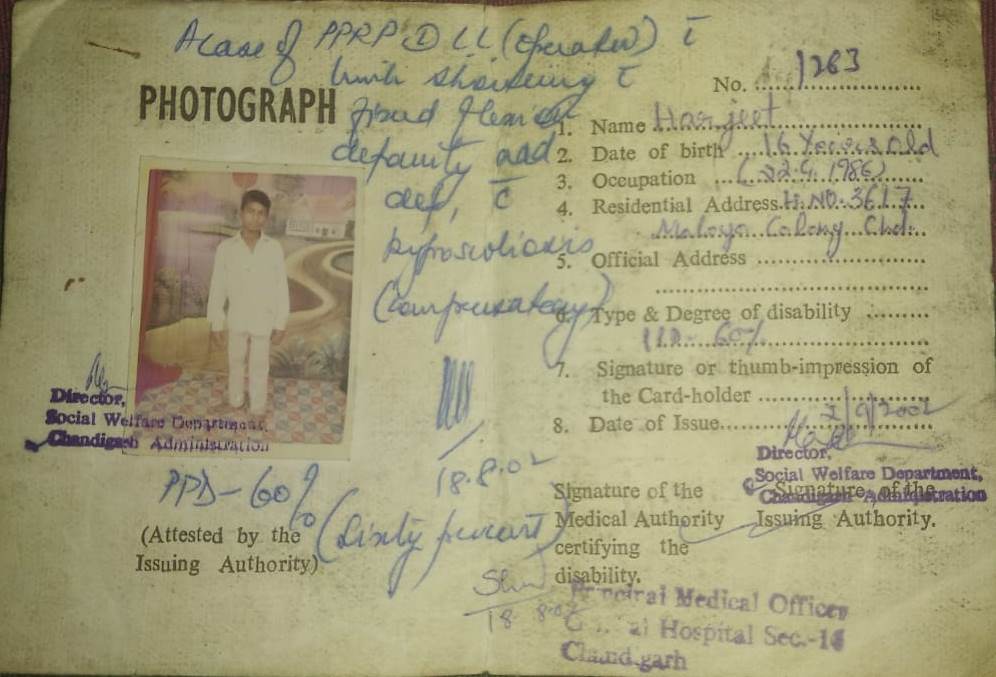 A case of PPRP ① LL (operated) c̄
limb shortening c̄
fixed flexion
deformity and
def, c̄
kyphoscoliosis
(compensatory)
PHOTOGRAPH
Director,
Social Welfare Department,
Chandigarh Administration
PPD-60%
(Sixty percent)
18.8.02
(Attested by the
Issuing Authority)
No. 1283
1. Name Harjeet
2. Date of birth 16 Years old
3. Occupation (22.9.1986)
4. Residential Address H.NO. 3617
Maloya Colony Chd.
5. Official Address
6. Type & Degree of disability
60%
7. Signature or thumb-impression of
the Card-holder
8. Date of Issue 2/9/2002
Director,
Social Welfare Department,
Chandigarh Administration
Signature of the
Issuing Authority.
Signature of the
Medical Authority
certifying the
disability.
18.8.02
Principal Medical Officer
Hospital Sec.-16
Chandigarh